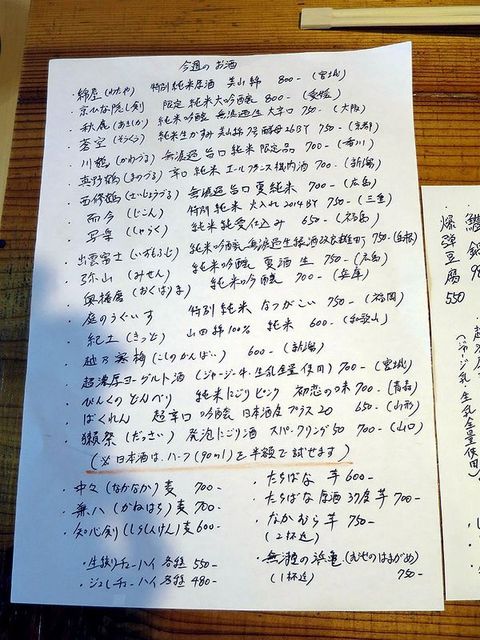 今週のお酒
・綿屋(わたや) 特別純米原酒 美山錦 800-(宮城)
・京ひな隠し剣 限定 純米大吟醸 800-(愛媛)
・秋鹿(あきしか) 純米吟醸 無濾過生 大辛口 750-(大阪)
・蒼空(そうくう) 純米生かすみ 美山錦7号酵母26BY 750-(京都)
・川鶴(かわつる) 無濾過 旨口 純米 限定品 700-(香川)
・真野鶴(まのつる) 辛口 純米 エールフランス機内酒 700-(新潟)
・西條鶴(さいじょうつる) 無濾過 旨口 夏純米 700-(広島)
・而今(じこん) 特別純米 火入れ 2014BY 750-(三重)
・写楽(しゃらく) 純米 純愛仕込み 650-(福島)
・出雲富士(いずもふじ) 純米吟醸 無濾過生原酒 改良雄町 750-(島根)
・弥山(みせん) 純米吟醸 夏酒 生 750-(広島)
・奥播磨(おくはりま) 純米吟醸 700-(兵庫)
・庭のうぐいす 特別純米 なつがこい 750-(福岡)
・紀土(きっど) 山田錦100% 純米 600-(和歌山)
・越乃寒梅(こしのかんばい) 600-(新潟)
・超濃厚ヨーグルト酒(ジャージー牛.生乳全量使用)700-(宮城)
・ぴんくの どんぺり 純米にごりピンク 初恋の味 700-(青森)
・ばくれん 超辛口 吟醸 日本酒度プラス20 650-(山形)
・獺祭(だっさい) 発泡にごり酒 スパークリング50 700-(山口)
(※日本酒は、ハーフ(90ml)を半額で試せます)
・中々(なかなか)麦 700-
・兼八(かねはち)麦 700-
・知心剣(しらしんけん)麦 600-
・生搾りチューハイ 各種 550-
・ジュレチューハイ 各種 480-
・たちばな 芋 600-
・たちばな 原酒 37度 芋 700-
・なかむら 芋 750-
(2杯迄)
・無濾過の浜亀(むろかのはまがめ)
(1杯迄) 750-
爆弾豆腐
550
(ジャージー乳・生乳全量使用)